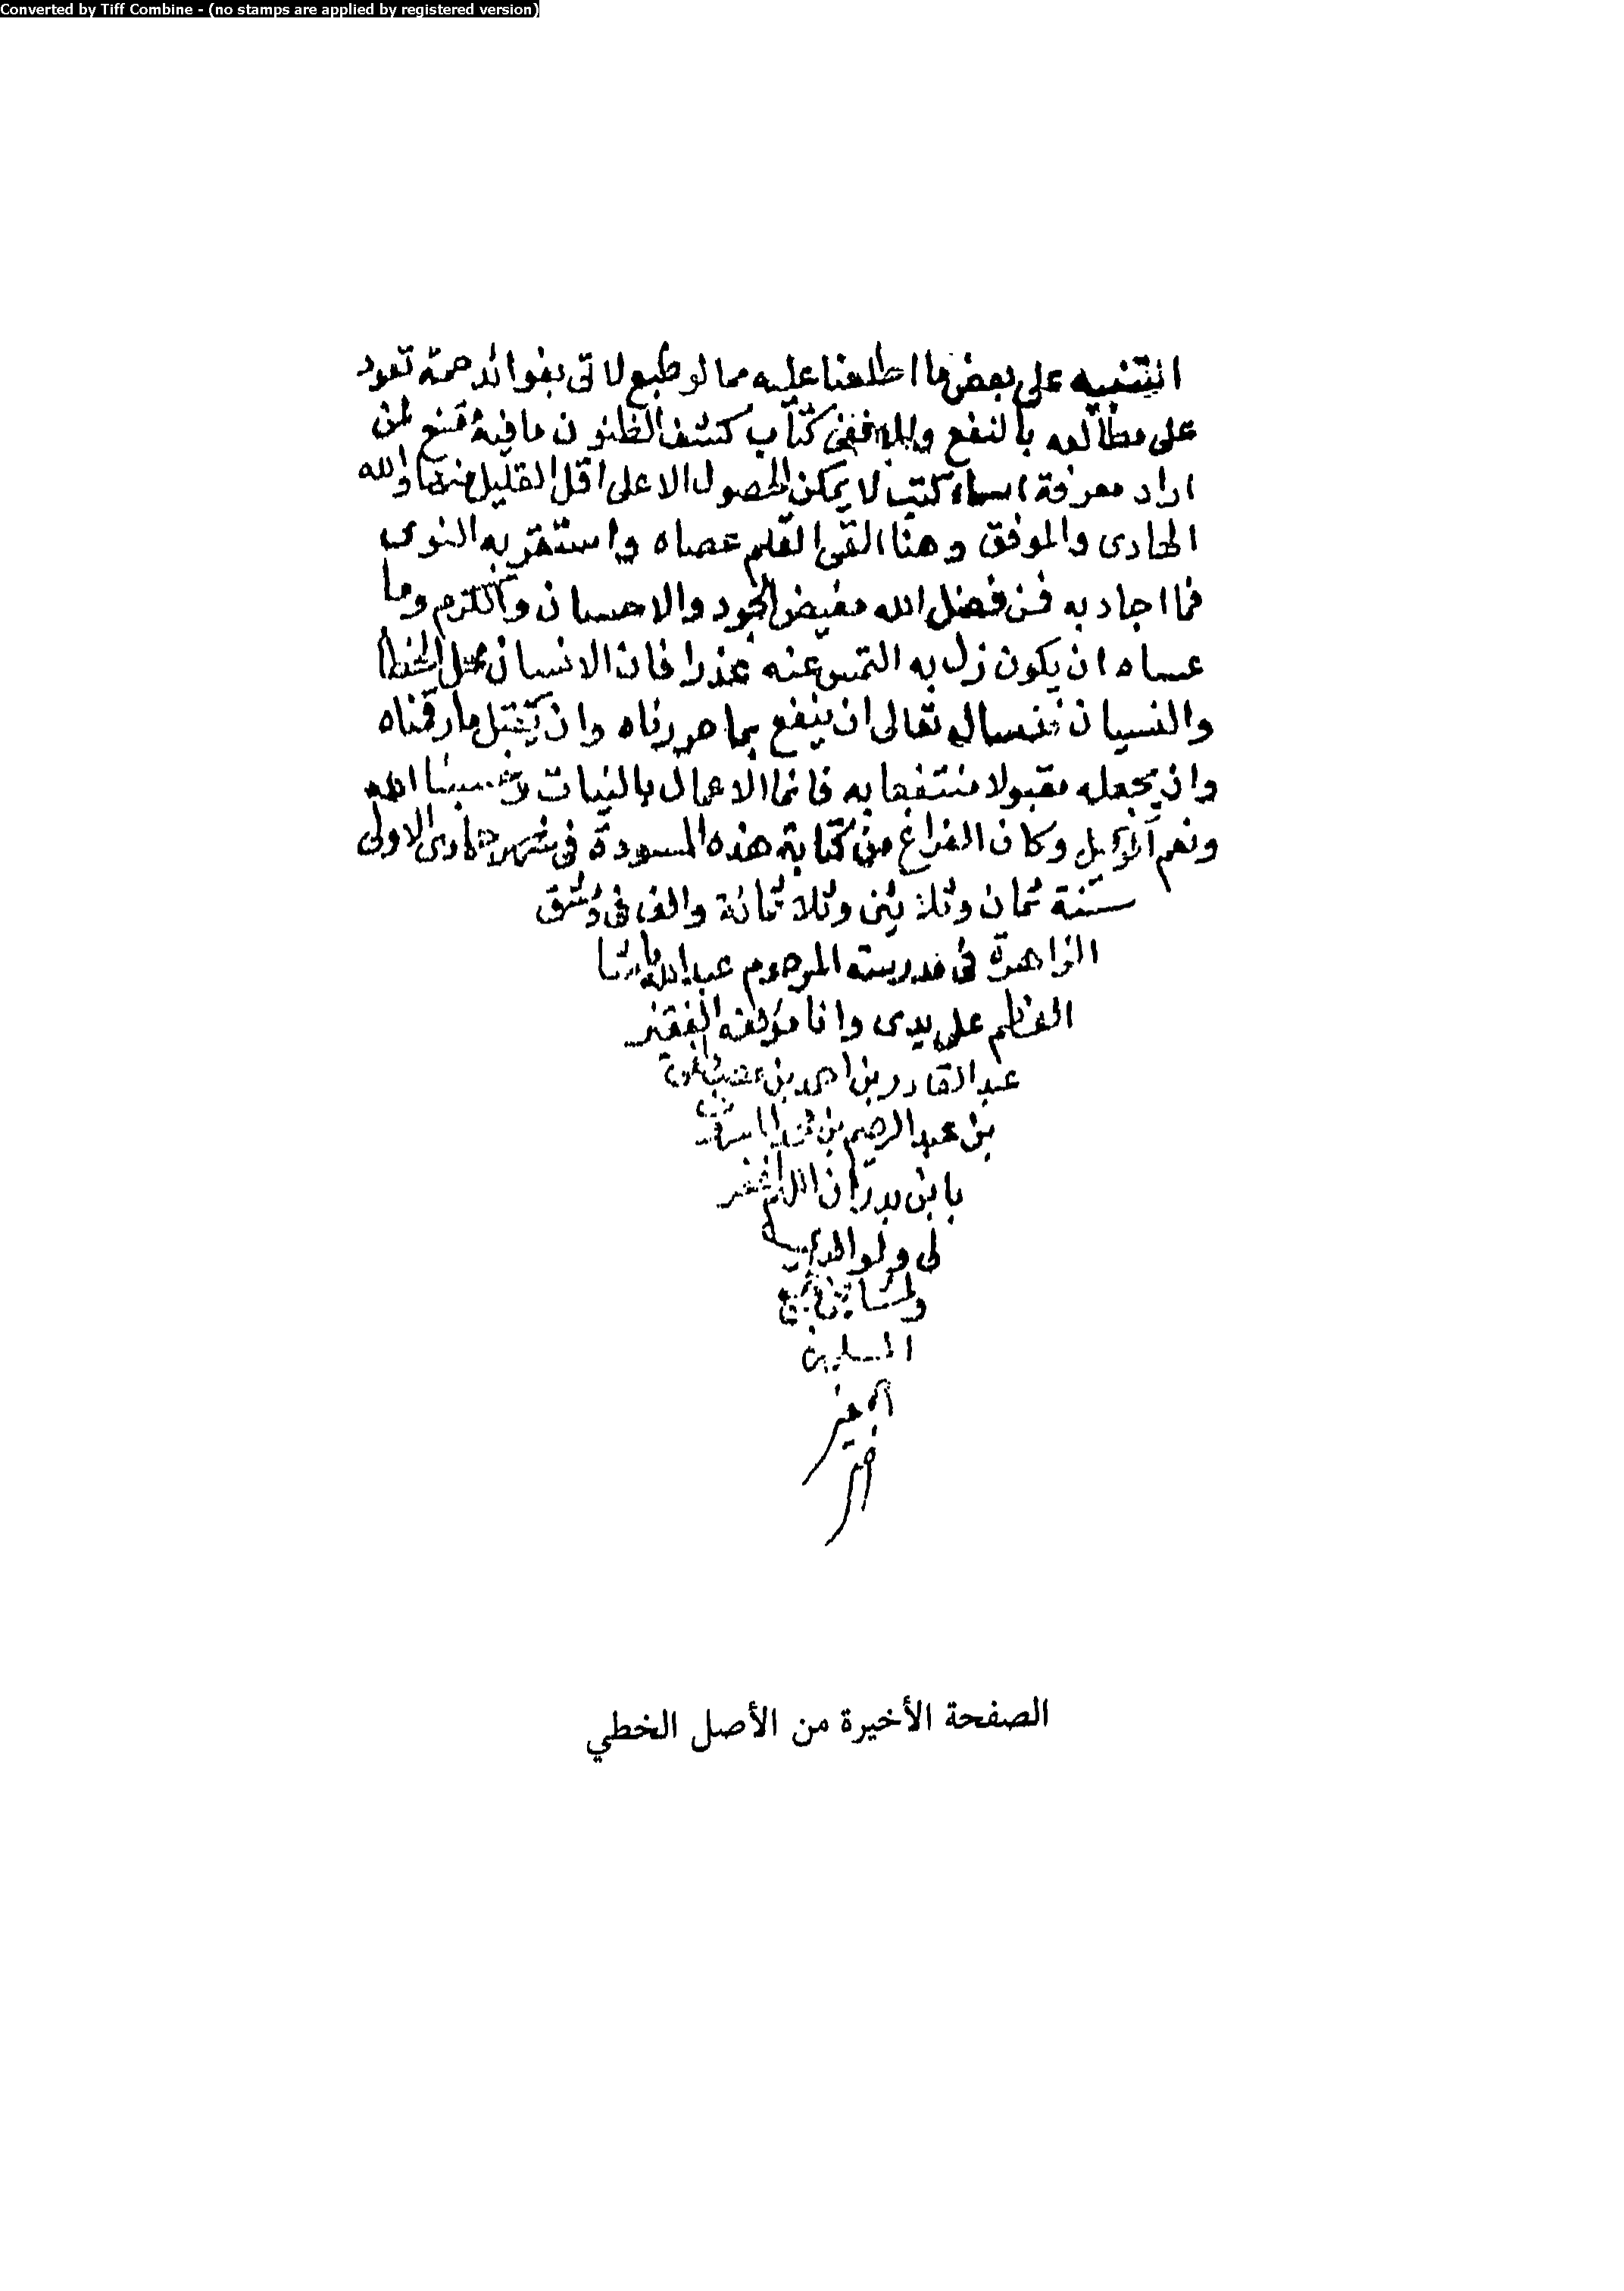 Converted by Tiff Combine - (no stamps are applied by registered version)
التنبيه على بعض ما اطلعنا عليه مما لو طبع لاتى بفوائد جمة تعود
على مطالعه بالنفع ففى كتاب كشف الظنون ما فيه مقنع لمن
اراد معرفة اسماء كتب لا يمكن الحصول الا على اقل القليل منها والله
الهادى والموفق وهنا القى القلم عصاه واستقر به النوى
فما اجاد به فمن فضل الله مفيض الجود والاحسان والكرم وما
عساه ان يكون زل به التمس عنه عذرا فان الانسان محل الخطا
والنسيان فنساله تعالى ان ينفع بما حررناه وان يتقبل ما رقمناه
وان يجعله مقبولا منتفعا به فانما الاعمال بالنيات وحسبنا الله
ونعم الوكيل وكان الفراغ من كتابة هذه المسودة فى شهر جمادى الاولى
سنة ثمان وثلاثين وثلاثمائة والف فى دمشق
الزاهرة فى مدرسة المرحوم عبدالله باشا
العظم على يدى وانا مؤلفه الفقير
عبد القادر بن احمد بن مصطفى
بن عبد الرحيم بن محمد
بابن بدران اللهم اغفر
لى ولوالدى
ولمشايخنا
المسلمين
الصفحة الأخيرة من الأصل الخطي